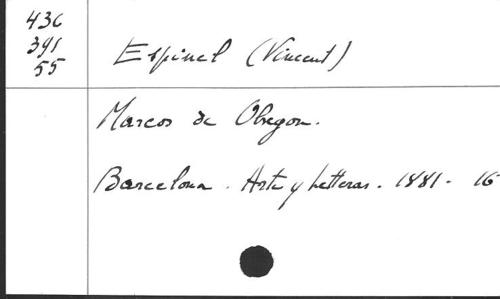 436
391
55
Espinel (Vincent)
Marcos de Obregon.
Barcelona. Arte y Letteras. 1881. 16